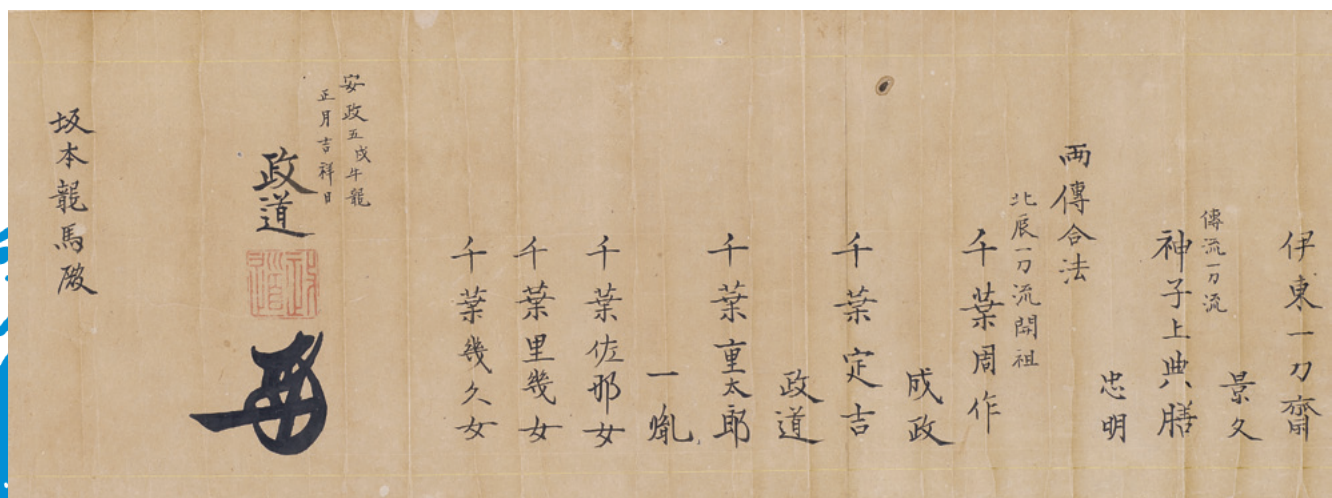 伊東一刀齋
景久
傳流一刀流
神子上典膳
忠明
兩傳合法
北辰一刀流開祖
千葉周作
成政
千葉定吉
政道
千葉重太郎
一胤
千葉佐那女
千葉里幾女
千葉幾久女
安政五戊午龍
正月吉祥日
政道
坂本龍馬殿